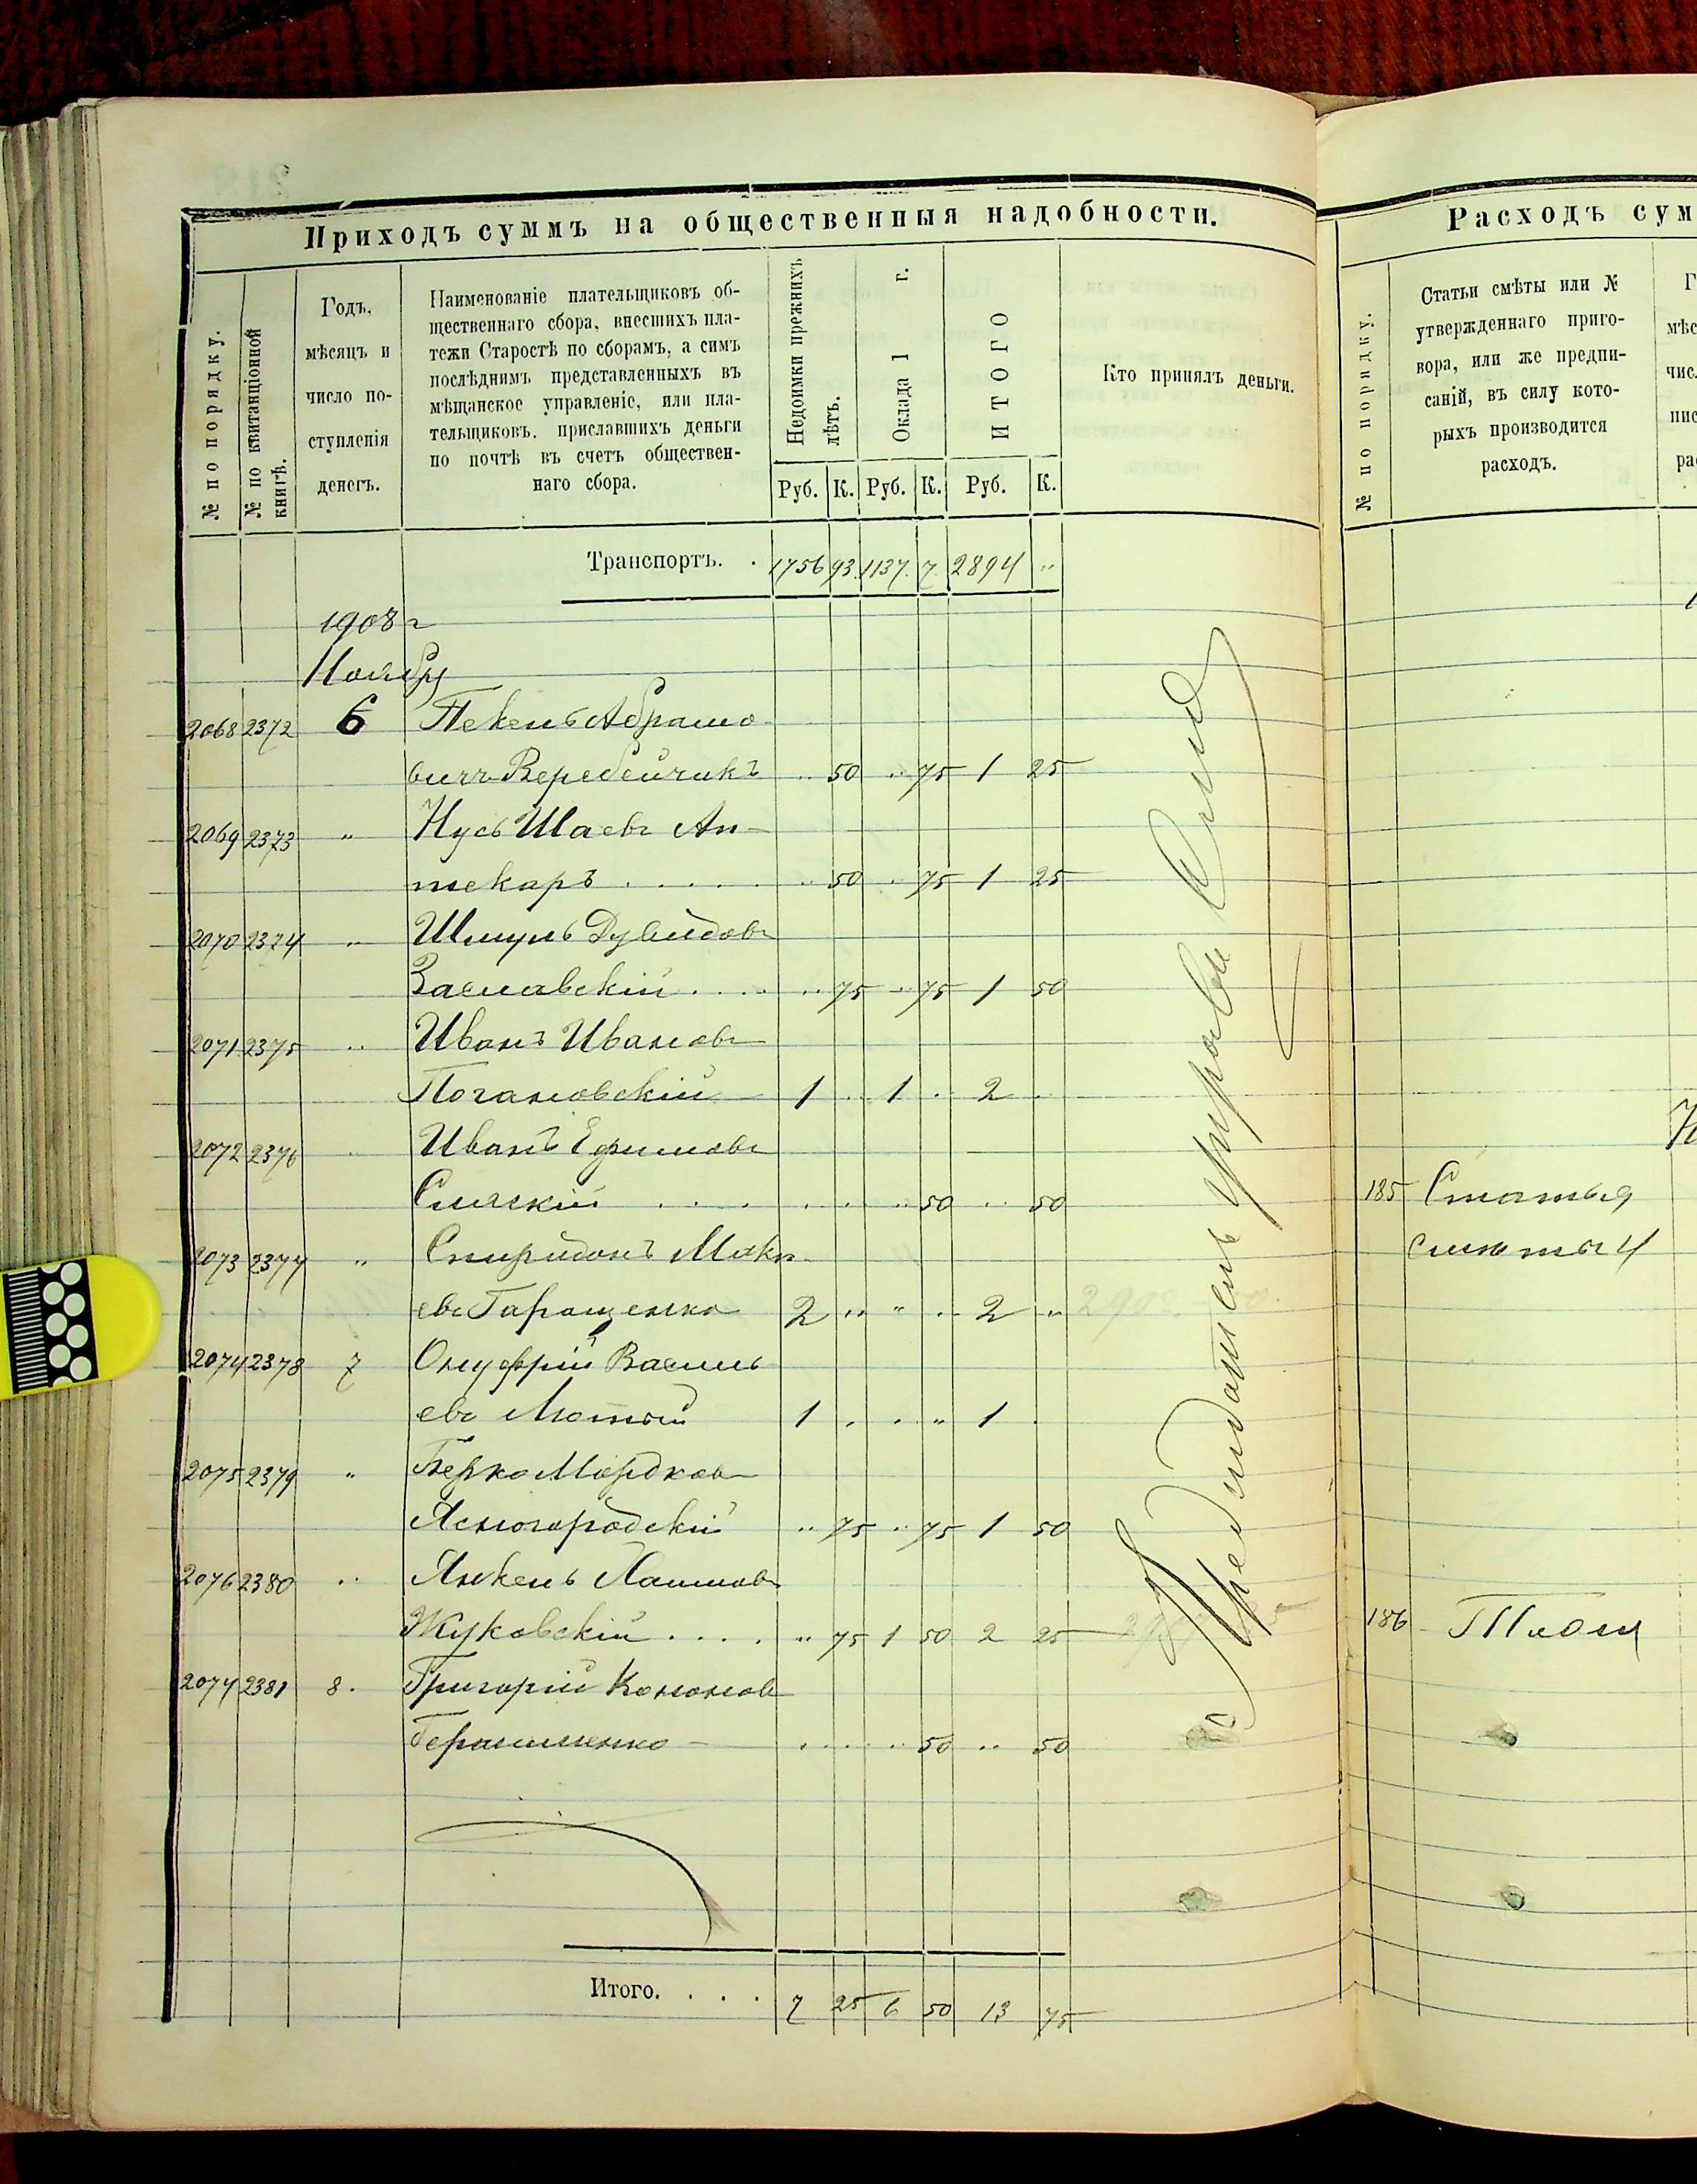 Приходъ суммъ на общественныя надобности.
№ по порядку.
№ по квитанціонной книгѣ.
Годъ, мѣсяцъ и число поступленія денегъ.
Наименованіе плательщиковъ об-
щественнаго сбора, внесшихъ пла-
тежи Старостѣ по сборамъ, а симъ
послѣднимъ представленныхъ въ
мѣщанское управленіе, или пла-
тельщиковъ. приславшихъ деньги
по почтѣ въ счетъ обществен-
наго сбора.
Недоимки прежнихъ лѣтъ.
Оклада 1 г.
ИТОГО
Кто принялъ деньги.
Руб. К. Руб. К. Руб. К.
Транспортъ. . 1756 93 1137 7 2894 "
1908 г
Ноябрь
2068 2372 6 Пекель Абрамо-
вичъ Веребейчикъ .. 50 .. 75 1 25
2069 2373 " Нусь Шаевъ Ап-
текаръ . . . . .. 50 .. 75 1 25
2070 2374 " Шмуль Дувидовъ
Заславскій . . . .. 75 .. 75 1 50
2071 2375 .. Иванъ Ивановъ
Погановскій 1 .. 1 .. 2 .
2072 2376 .. Иванъ Ефимовъ
. . . . .. 50 .. 50
2073 2377 " Спиридонъ
евъ Гаращенко 2 .. " .. 2 "
2074 2378 7 Онуфрій Василь
евъ Лютый 1 . . " 1 .
2075 2379 " Берко Мордков
Ясногородскій .. 75 .. 75 1 50
2076 2380 .. Янкель Хаимовъ
Жуковскій . . . . " 75 1 50 2 25
2077 2381 8. Григорій Кононов
Герасименко . . . .. 50 .. 50
Итого. . . . 7 25 6 50 13 75
Предсѣдатель управы
Расходъ сум
№ по порядку.
Статьи смѣты или №
утвержденнаго приго-
вора, или же предпи-
саній, въ силу кото-
рыхъ производится
расходъ.
185 Статья
смѣты 4
186